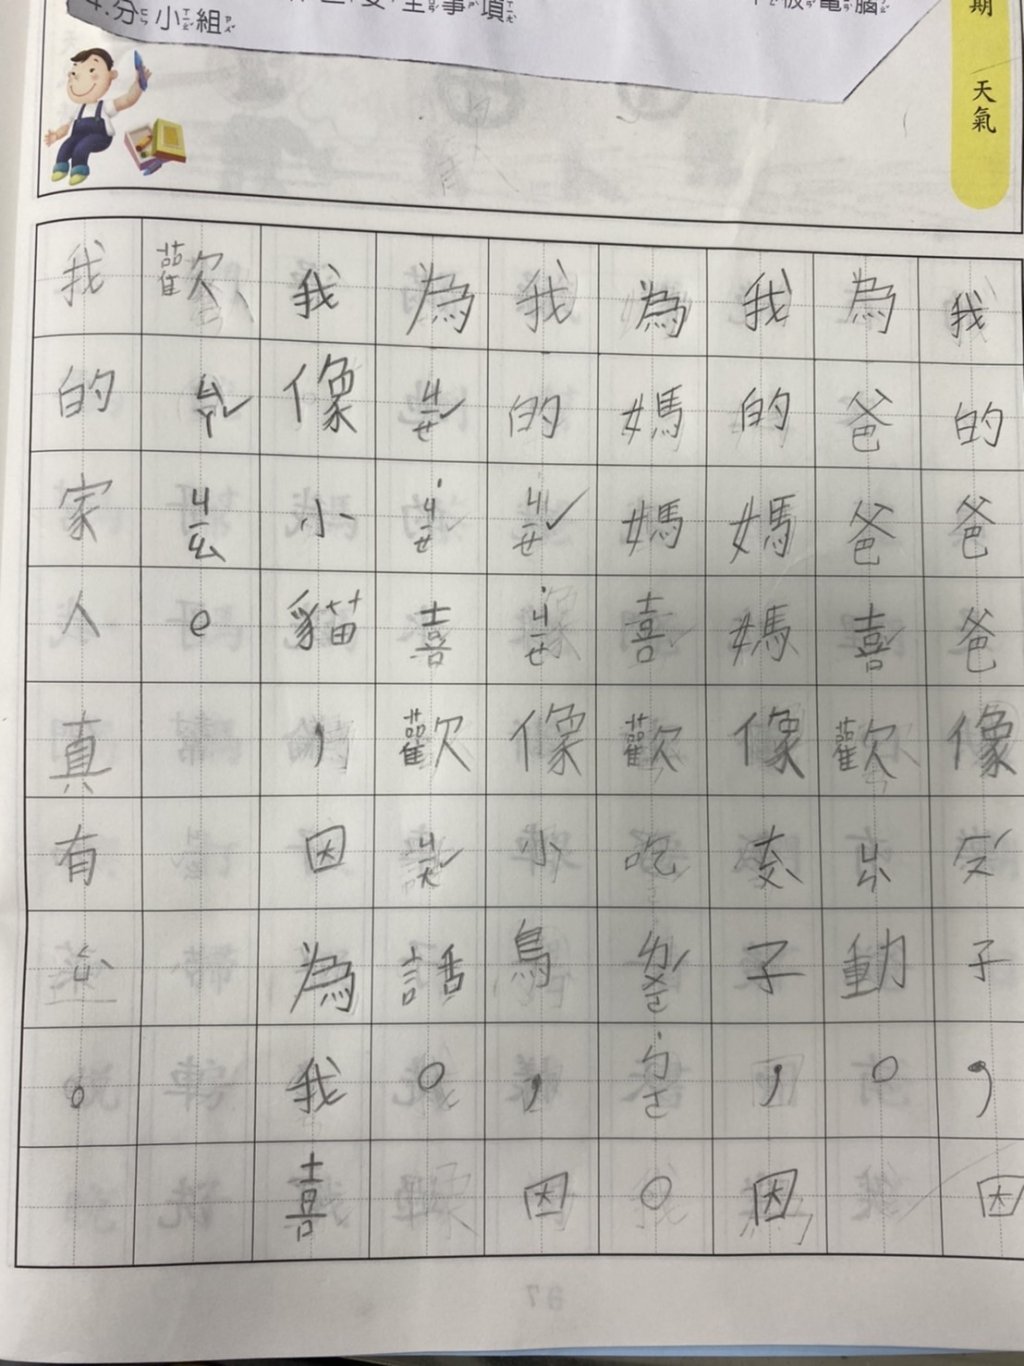 4.分小組
事項
板電腦
期
天氣
我的爸爸像子，因
為爸爸喜歡動。
我的媽媽像子，因
為媽媽喜歡吃ㄌㄨㄛˊ˙ㄅㄛ。
我的ㄐㄧㄝˇ˙ㄐㄧㄝ像小鳥，因
為ㄐㄧㄝˇ˙ㄐㄧㄝ喜歡ㄐㄧㄤˇ話。
我像小貓，因為我喜
歡ㄙㄚˇㄐㄧㄠ。
我的家人真有。